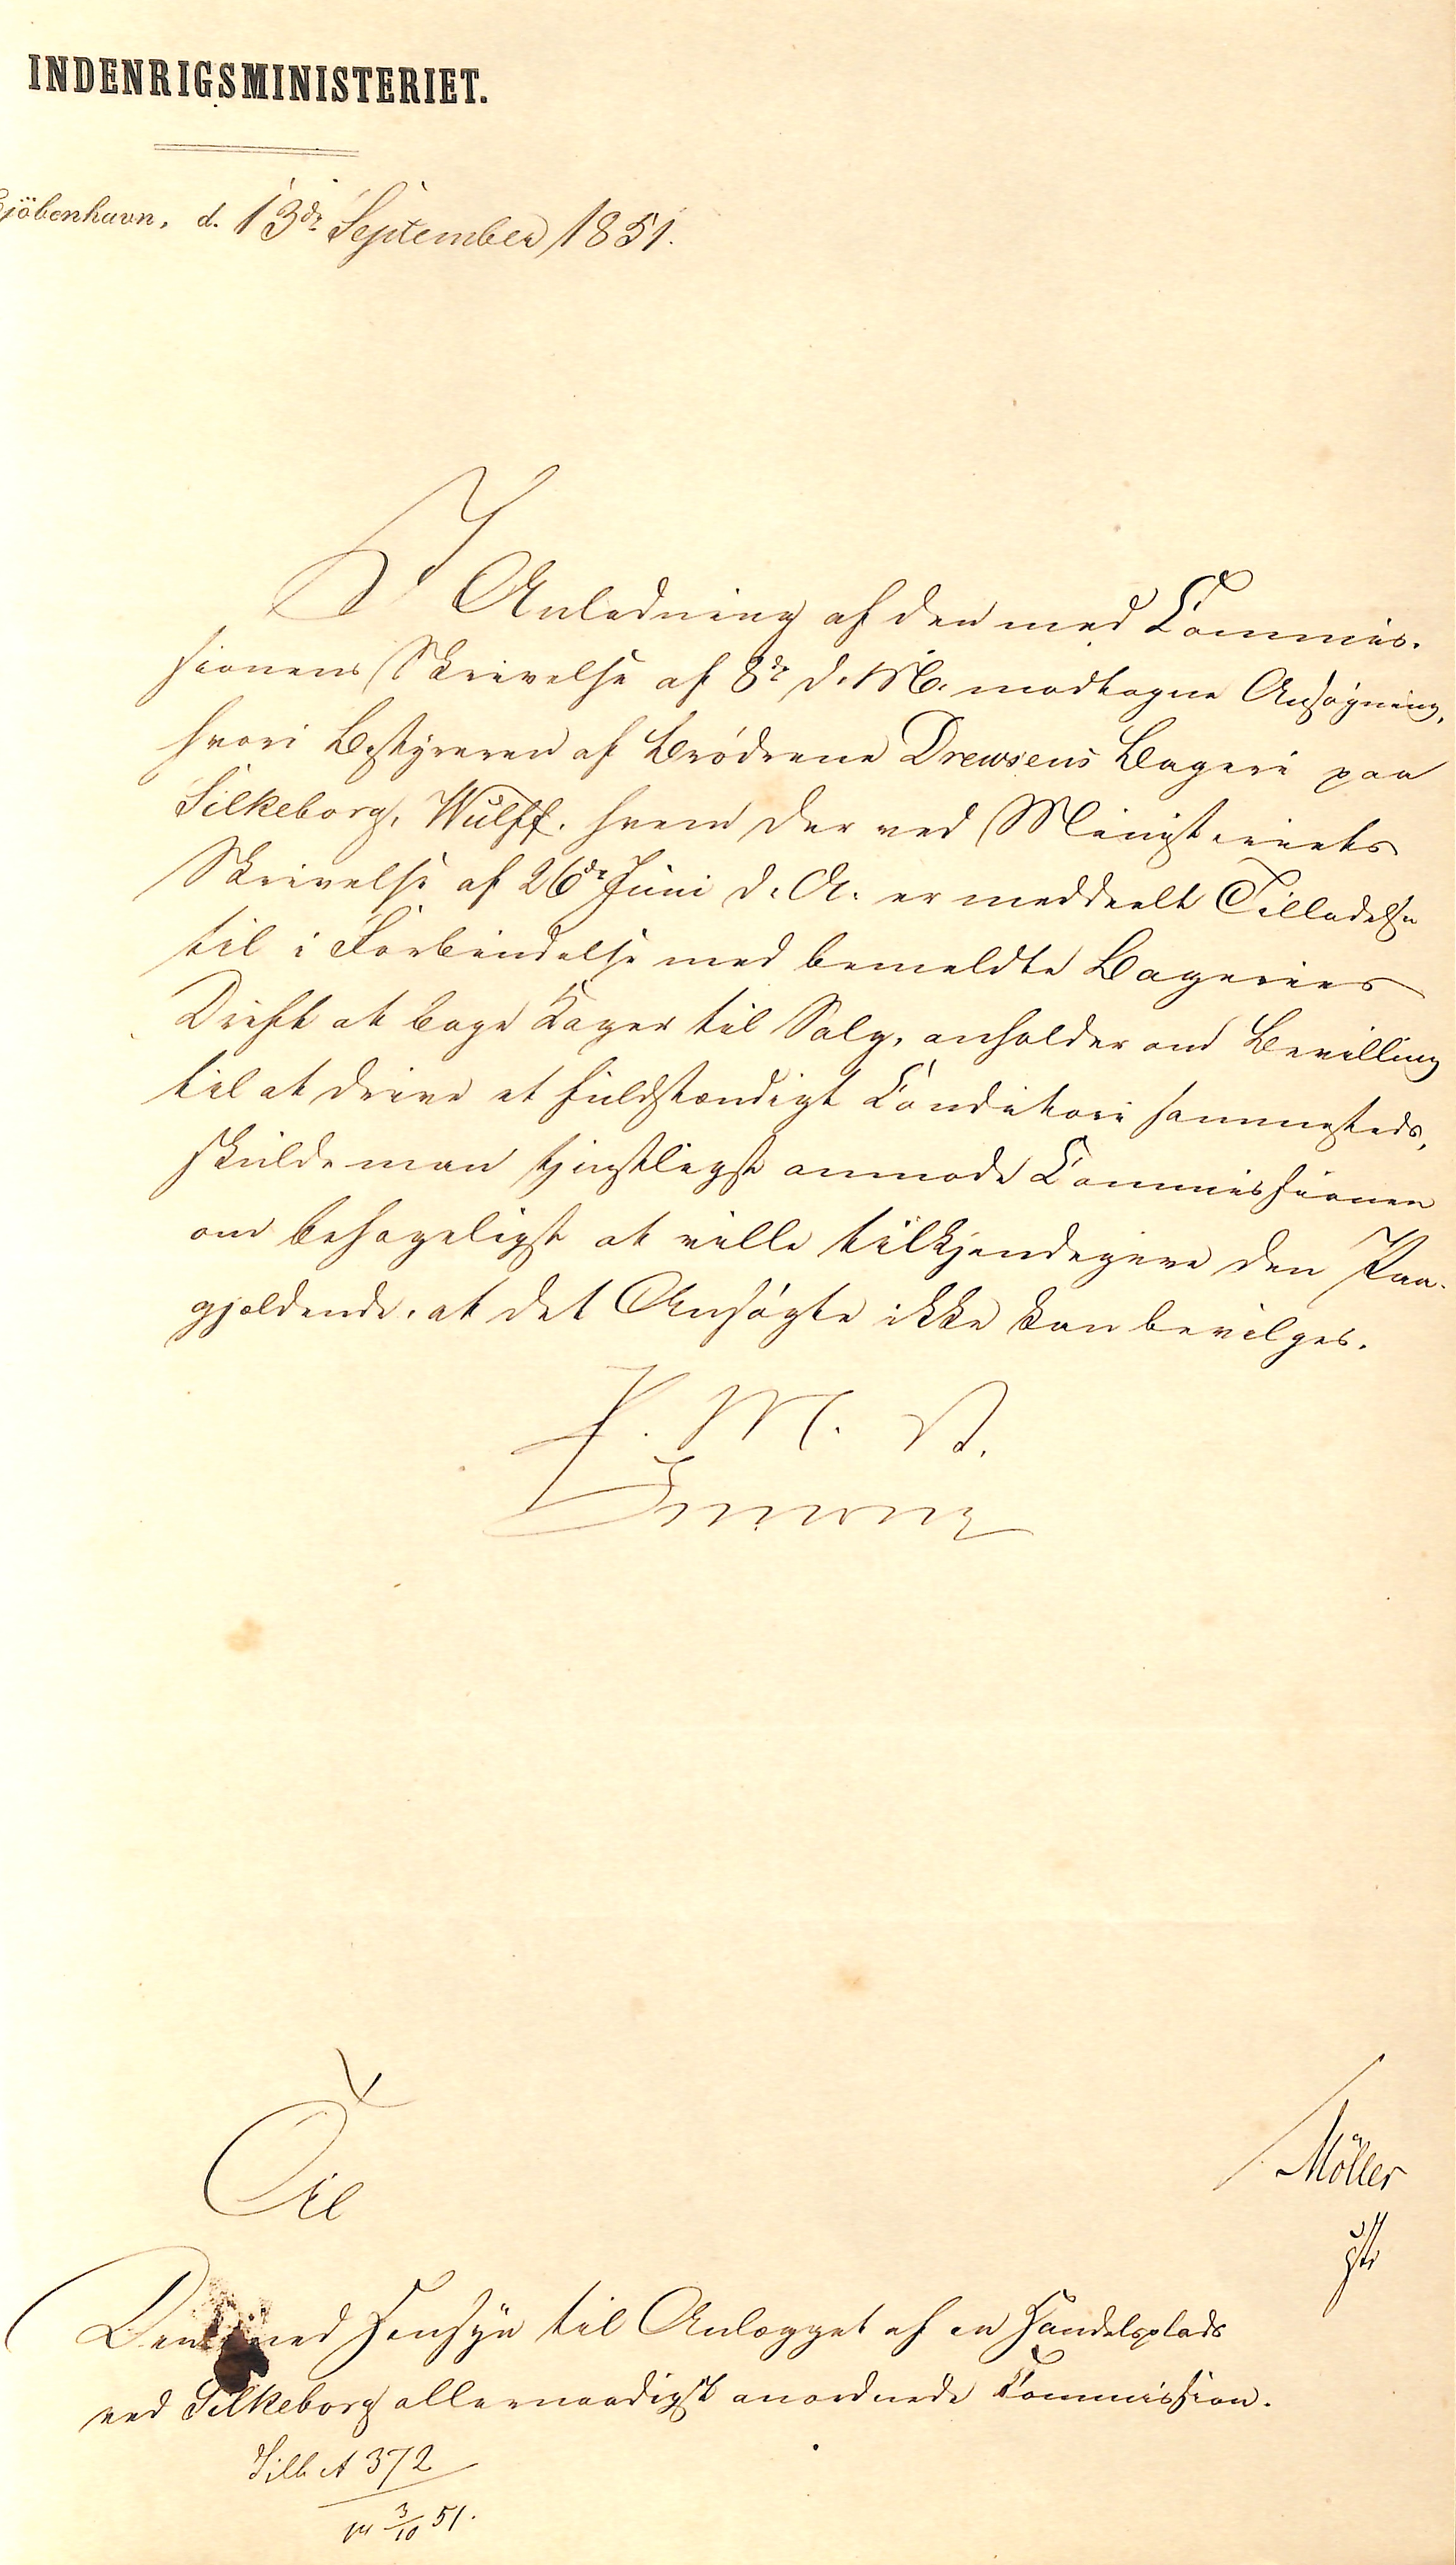 INDENRIGSMINISTERIET.
Kjöbenhavn, d. 13de September 1851.
I Anledning af den med Commis-
sionens Skrivelse af 8de d. M. modtagne Ansøgning,
hvori Bestyreren af Brødrene Drewsens Bageri paa
Silkeborg, Wulff, hvem der ved Ministeriets
Skrivelse af 26de Juni d. A. er meddeelt Tilladelse
til i Forbindelse med bemeldte Bageries
Drift at bage Kager til Salg, anholder om Bevilling
til at drive et fuldstændigt Conditori sammesteds,
skulde man tjenstligst anmode Commissionen
om behageligst at ville tilkjendegive den Paa-
gjældende, at det Ansøgte ikke kan bevilges.
P. M. V.
Til
Möller
Den med Hensyn til Anlægget af en Handelsplads
ved Silkeborg allernaadigst anordnede Commission.
Silk A 372
3/10 51.